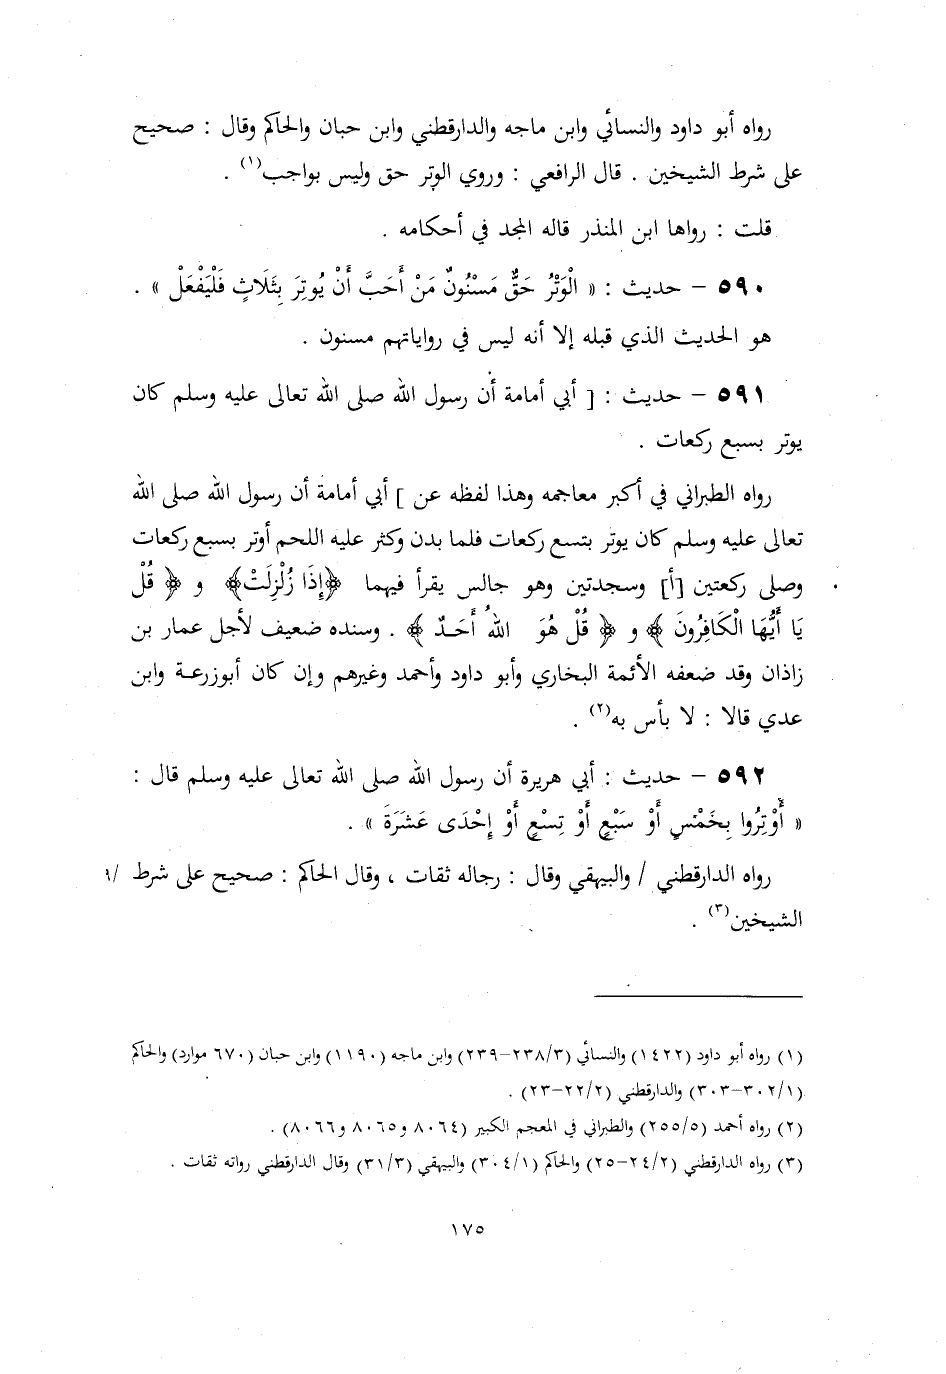 رواه أبو داود والنسائي وابن ماجه والدارقطني وابن حبان والحاكم وقال : صحيح
على شرط الشيخين . قال الرافعي : وروي الوتر حق وليس بواجب(١) .
قلت : رواها ابن المنذر قاله المجد في أحكامه .
٥٩٠ – حديث : « الْوَتْرُ حَقٌّ مَسْنُونٌ مَنْ أَحَبَّ أَنْ يُوتِرَ بِثَلَاثٍ فَلْيَفْعَلْ » .
هو الحديث الذي قبله إلا أنه ليس في رواياتهم مسنون .
٥٩١ – حديث : [ أبي أمامة أن رسول الله صلى الله تعالى عليه وسلم كان
يوتر بسبع ركعات .
رواه الطبراني في أكبر معاجمه وهذا لفظه عن ] أبي أمامة أن رسول الله صلى الله
تعالى عليه وسلم كان يوتر بتسع ركعات فلما بدن وكثر عليه اللحم أوتر بسبع ركعات
وصلى ركعتين [أ] وسجدتين وهو جالس يقرأ فيهما ﴿إِذَا زُلْزِلَتْ﴾ و ﴿ قُلْ
يَا أَيُّهَا الْكَافِرُونَ ﴾ و ﴿ قُلْ هُوَ اللهُ أَحَدٌ ﴾ . وسنده ضعيف لأجل عمار بن
زاذان وقد ضعفه الأئمة البخاري وأبو داود وأحمد وغيرهم وإن كان أبوزرعة وابن
عدي قالا : لا بأس به(٢) .
٥٩٢ – حديث : أبي هريرة أن رسول الله صلى الله تعالى عليه وسلم قال :
« أَوْتِرُوا بِخَمْسٍ أَوْ سَبْعٍ أَوْ تِسْعٍ أَوْ إِحْدَى عَشَرَةَ » .
رواه الدارقطني / والبيهقي وقال : رجاله ثقات ، وقال الحاكم : صحيح على شرط
الشيخين(٣) .
(١) رواه أبو داود (١٤٢٢) والنسائي (٢٣٨/٣–٢٣٩) وابن ماجه (١١٩٠) وابن حبان (٦٧٠ موارد) والحاكم
(٣٠٢/١–٣٠٣) والدارقطني (٢٢/٢–٢٣) .
(٢) رواه أحمد (٢٥٥/٥) والطبراني في المعجم الكبير (٨٠٦٤ و٨٠٦٥ و٨٠٦٦) .
(٣) رواه الدارقطني (٢٤/٢–٢٥) والحاكم (٣٠٤/١) والبيهقي (٣١/٣) وقال الدارقطني رواته ثقات .
١٧٥